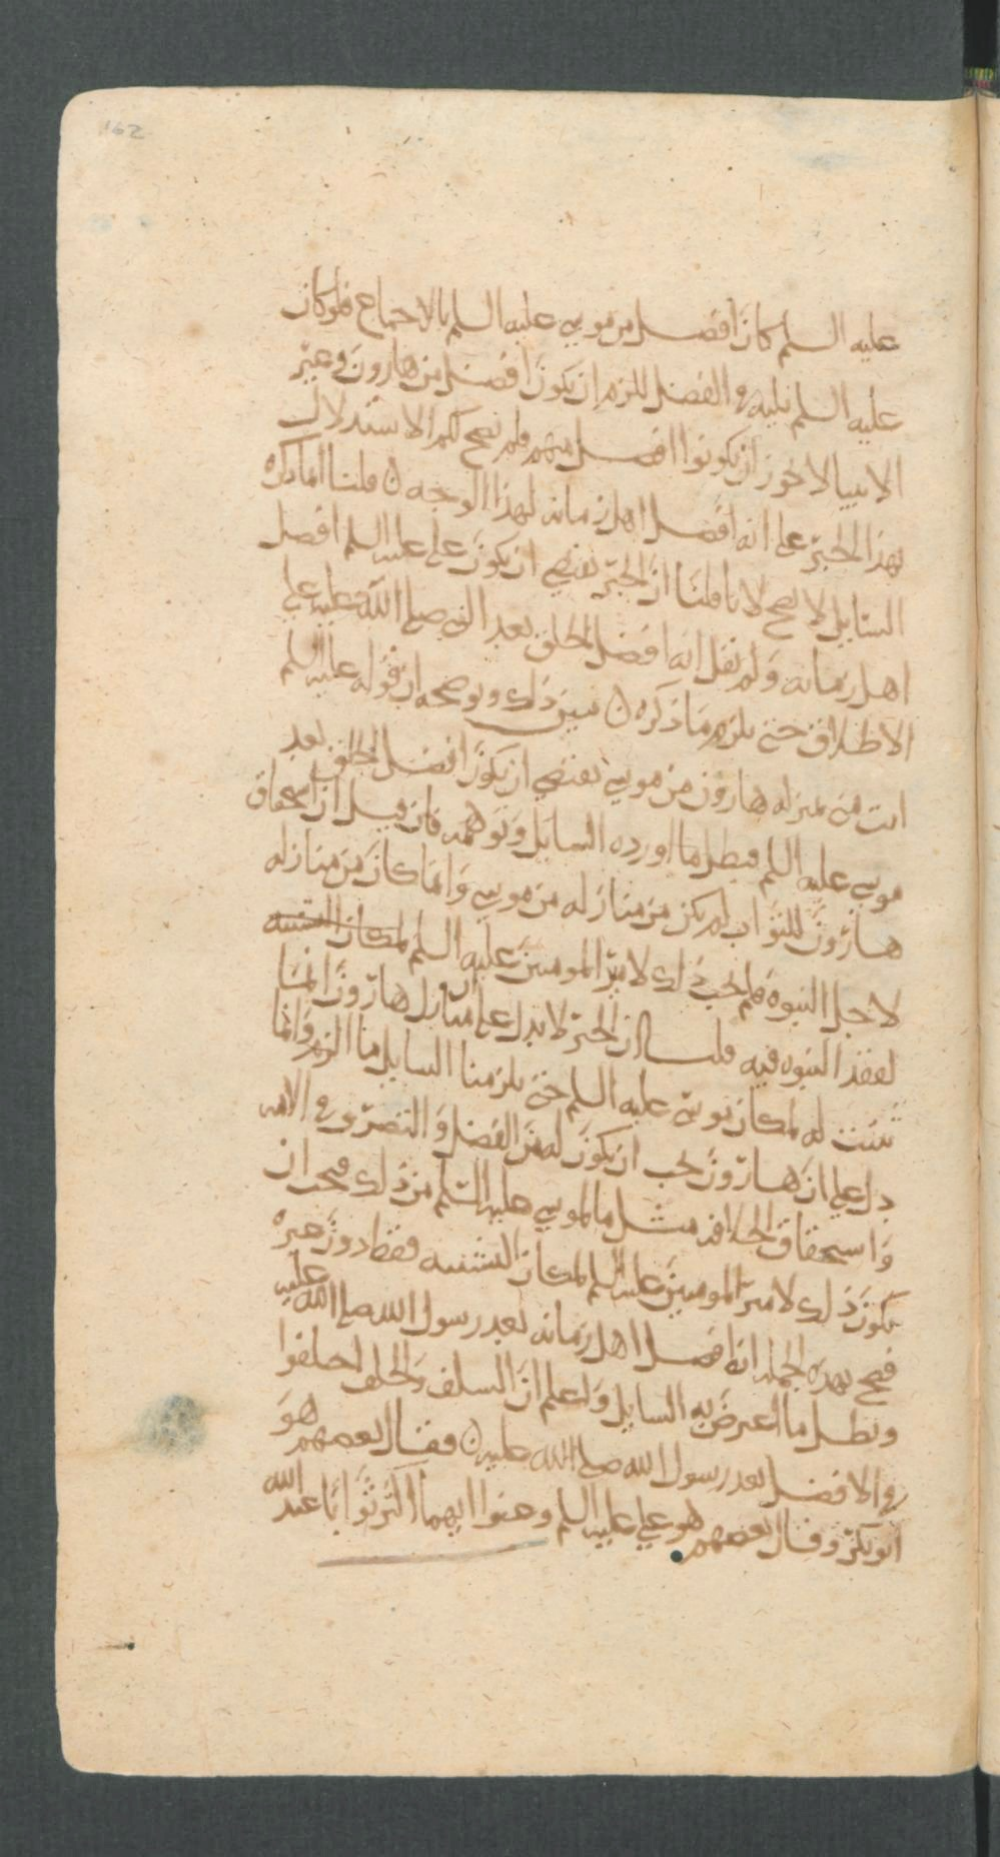 162
عليه السلم كان افضل من موسى عليه السلم بالاجماع فلو كان
عليه السلم يليه في الفضل للزم ان يكون افضل من هارون وغير
الانبيا لا يجوز ان يكونوا افضل منهم فلم يصح لكم الاستدلال
بهذا الخبر على انه افضل اهل زمانه لهذا الوجه ن قلنا انما ذكره
السايل لا يصح لانا قلنا ان الخبر يقتضي ان يكون علي عليه السلم افضل
اهل زمانه ولم نقل انه افضل الخلق بعد النبي صلى الله عليه على
الاطلاق حتى يلزم ما ذكره ن يبين ذلك ويوضحه ان قوله عليه السلم
انت مني بمنزله هارون من موسى يقتضي ان يكون افضل الخلق بعد
موسى عليه السلم فبطل ما اورده السايل وتوهمه فان قيل ان استحقاق
هارون للثواب لم يكن من منازله من موسى وانما كان من منازله
لاجل النبوه فلم يجب ذلك لامير المومنين عليه السلم لمكان التشبيه
لفقد النبوه فيه قلنا ان الخبر لا يدل على ان منازل هارون انما
تثبت له لمكان نبوته عليه السلم حتى يلزمنا السايل ما الزم وانما
دل على ان هارون يجب ان يكون له من الفضل والتصرف في الامه
واستحقاق الخلافه مثل ما لموسى عليه السلم من ذلك فيجب ان
يكون ذلك لامير المومنين عليه السلم لمكان التشبيه فقط دون غيره
فصح بهذه الجمله انه افضل اهل زمانه بعد رسول الله صلى الله عليه
وبطل ما اعترض به السايل واعلم ان السلف والخلف اختلفوا
في الافضل بعد رسول الله صلى الله عليه ن فقال بعضهم هو
ابو بكر وقال بعضهم هو علي عليه السلم وعنوا ايهما اكثر ثوابا عند الله